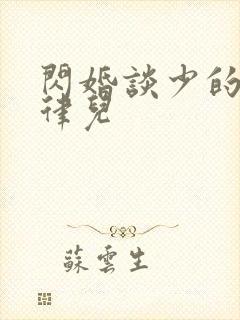 閃婚談少的
律兒
蘇雲生